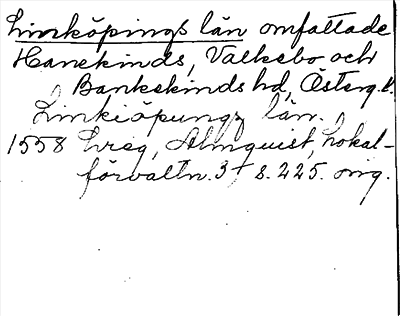 Linköpings län omfattade
Hanekinds, Valkebo och
Bankekinds hd, Österg.l.
Linkiöpungz län.
1558 Lreg, Almquist, Lokal-
förvaltn. 3 s. 225. orig.